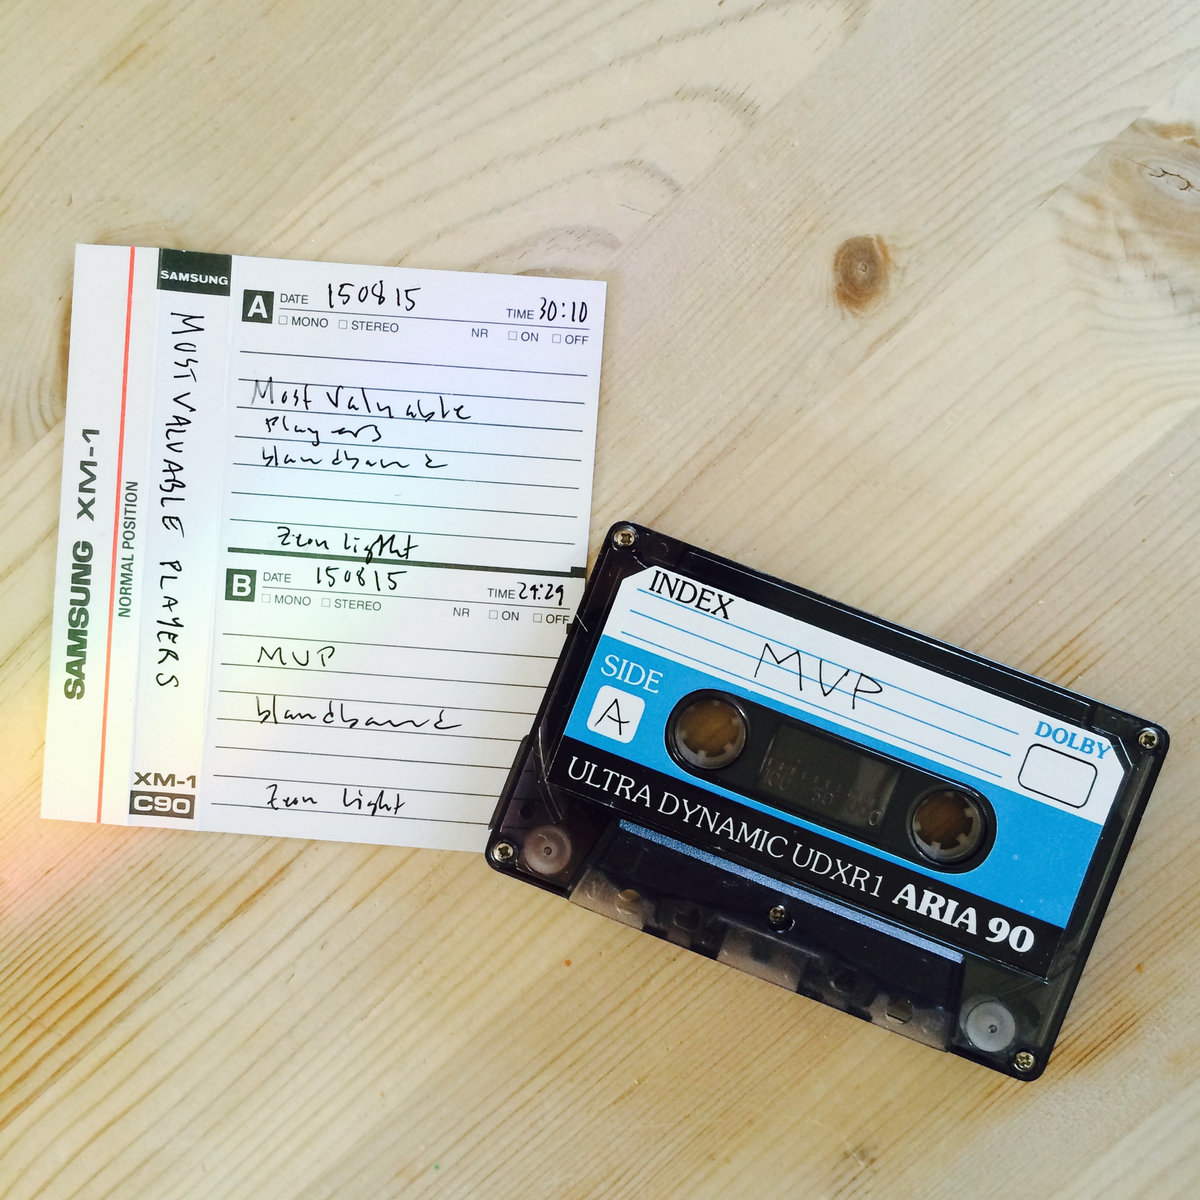 SAMSUNG XM-1
NORMAL POSITION
SAMSUNG
MOST VALUABLE PLAYERS
XM-1
C90
A DATE 150815 TIME 30:10
MONO STEREO NR ON OFF
Most Valuable
Players
blandband
Zeon Light
B DATE 150815 TIME 29:29
MONO STEREO NR ON OFF
MVP
blandband
Zeon Light
INDEX
MVP
SIDE
A
DOLBY
ULTRA DYNAMIC UDXR1 ARIA 90